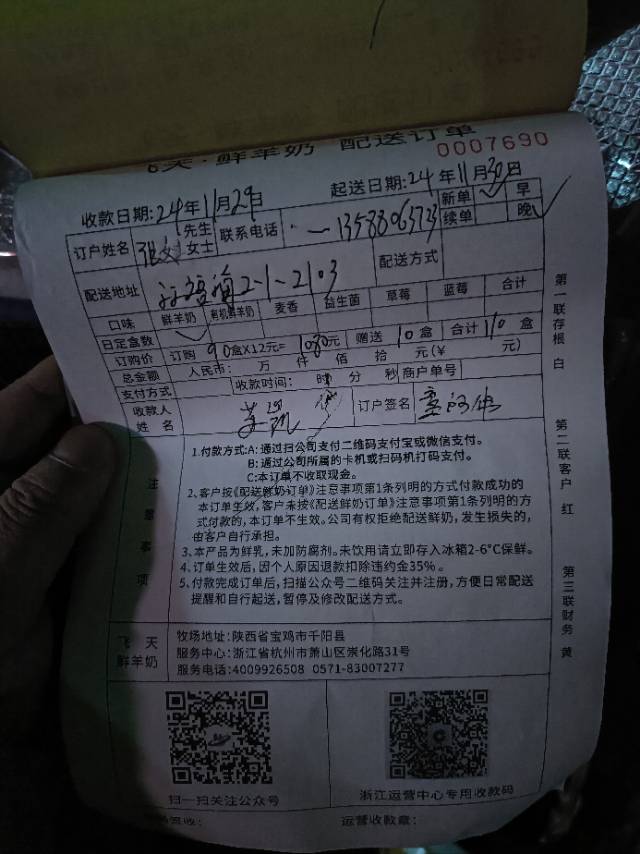 飞天·鲜羊奶 配送订单
0007690
收款日期:24年11月29日 起送日期:24年11月30日
订户姓名 先生 女士 联系电话 新单 ✓ 续单 早 晚 ✓
配送地址 2-1-2103 配送方式
口味 鲜羊奶 有机鲜羊奶 麦香 益生菌 草莓 蓝莓 合计
日定盒数 ✓
订购价 订购 90盒X12元=1080元 赠送 10盒 合计 110盒
总金额 人民币: 万 仟 佰 拾 元(¥ 元)
支付方式 收款时间: 时 分 秒 商户单号
收款人姓名 订户签名
注意事项
1.付款方式:A:通过扫公司支付二维码支付宝或微信支付。
B:通过公司所属的卡机或扫码机打码支付。
C:本订单不收取现金。
2、客户按《配送鲜奶订单》注意事项第1条列明的方式付款成功的
本订单生效,客户未按《配送鲜奶订单》注意事项第1条列明的方
式付款的,本订单不生效。公司有权拒绝配送鲜奶,发生损失的,
由客户自行承担。
3、本产品为鲜乳,未加防腐剂。未饮用请立即存入冰箱2-6°C保鲜。
4、订单生效后,因个人原因退款扣除违约金35%。
5、付款完成订单后,扫描公众号二维码关注并注册,方便日常配送
提醒和自行起送,暂停及修改配送方式。
飞天
鲜羊奶
牧场地址:陕西省宝鸡市千阳县
服务中心:浙江省杭州市萧山区崇化路31号
服务电话:4009926508 0571-83007277
扫一扫关注公众号 浙江运营中心专用收款码
签收: 运营收款章:
第一联存根 白
第二联客户 红
第三联财务 黄